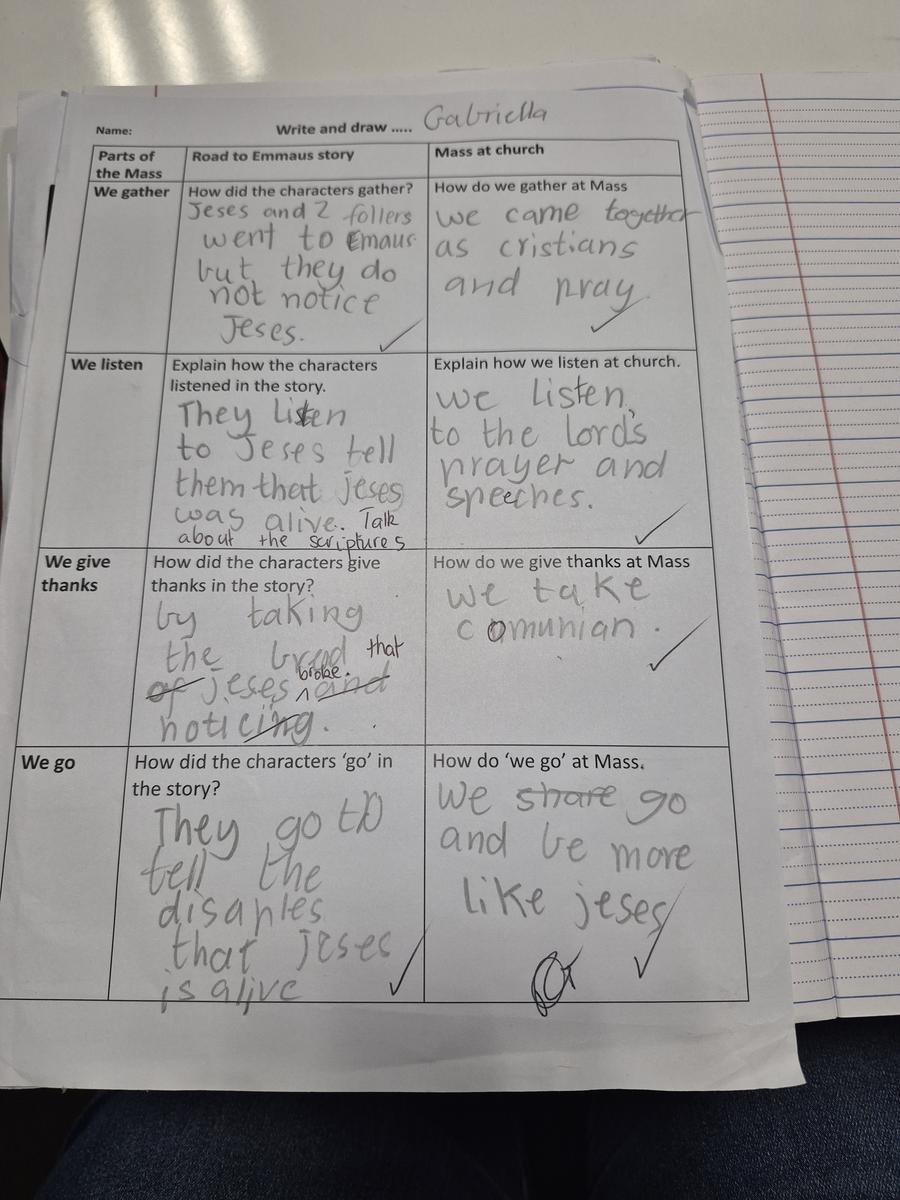 Name: Write and draw ..... Gabriella
Parts of
the Mass
Road to Emmaus story
Mass at church
We gather
How did the characters gather?
Jeses and 2 follers
went to Emaus
but they do
not notice
Jeses.
How do we gather at Mass
we came together
as cristians
and pray.
We listen
Explain how the characters
listened in the story.
They listen
to Jeses tell
them that jeses
was alive. Talk
about the scriptures
Explain how we listen at church.
we listen
to the lord's
prayer and
speeches.
We give
thanks
How did the characters give
thanks in the story?
by taking
the bread that
of jeses broke. and
noticing.
How do we give thanks at Mass
we take
comunian.
We go
How did the characters 'go' in
the story?
They go to
tell the
disaples
that jeses
is alive
How do 'we go' at Mass.
We share go
and be more
like jeses